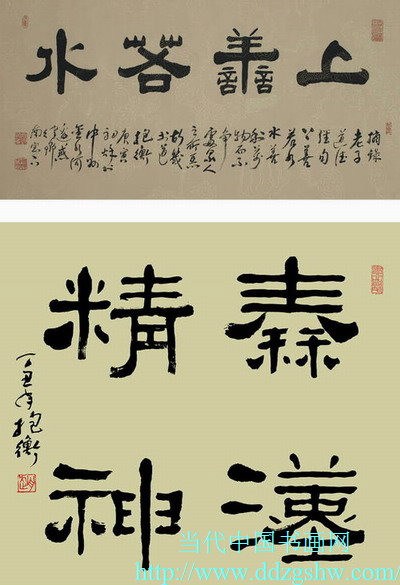 上善若水
摘錄
老子
道德
經句
上善
若水
水善
利萬
物而不
爭
處眾人
之所惡
故幾
於道
抱衡
庚寅
中州
金水河
南窗下
秦漢
精神
丁丑年抱衡
当代中国书画网
http://www.ddzgshw.com/